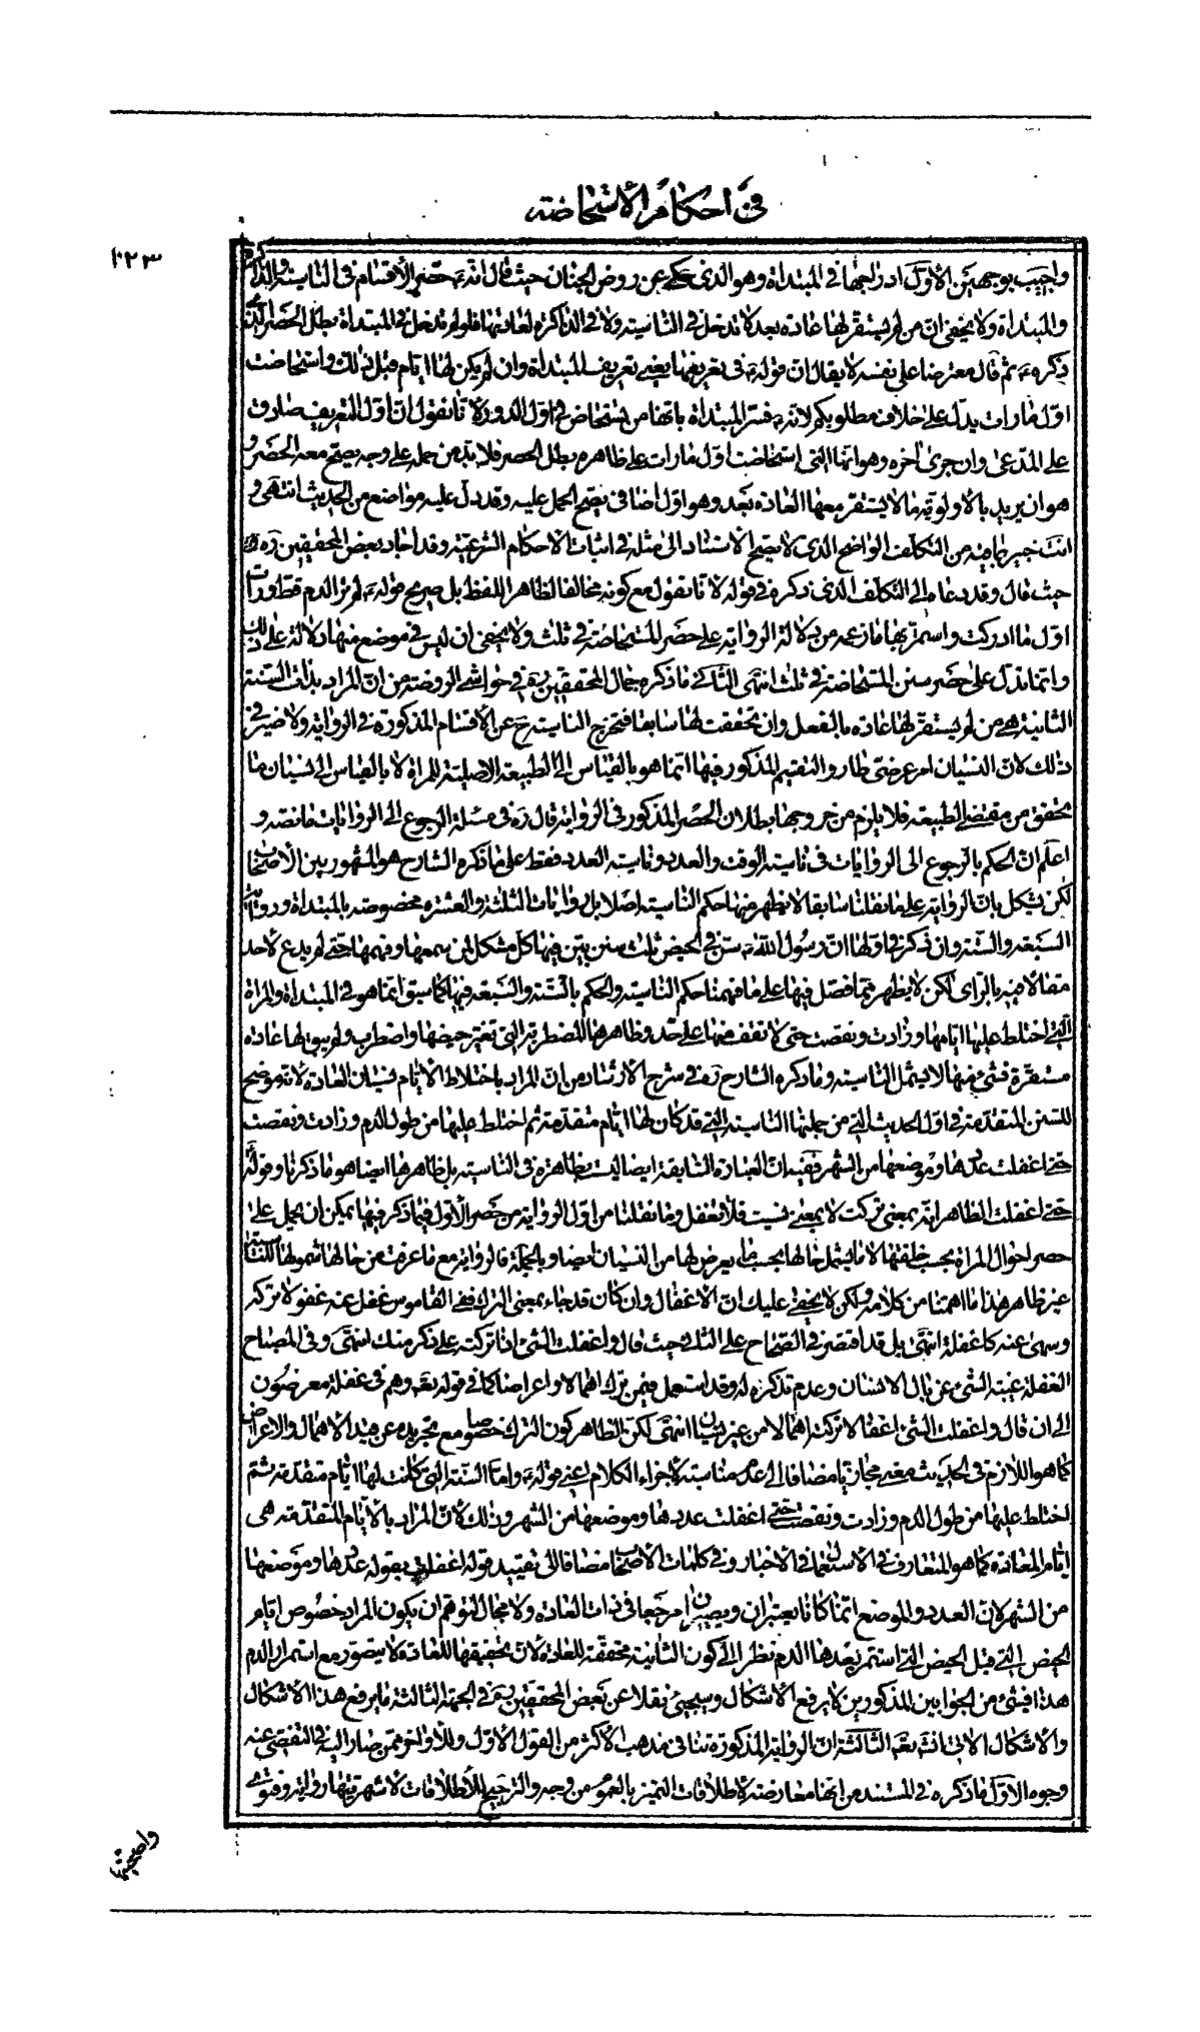 في احكام الاستحاضة
١٠٢٣
واجيب بوجهين الاول ادراجها في المبتداة وهو الذي حكي عن روض الجنان حيث قال انه ع حصر الاقسام في الناسية والذاكرة
والمبتداة ولا يخفى ان من لم يستقر لها عادة بعد لا تدخل في الناسية ولا في الذاكرة لعادتها فلو لم تدخل في المبتداة بطل الحصر الذي
ذكره ع ثم قال معترضا على نفسه لا يقال ان قوله ع في تعريفها يعني تعريف المبتداة وان لم يكن لها ايام قبل ذلك واستحاضت
اول ما رات يدل على خلاف مطلوبكم لانه ع فسر المبتداة بانها من تستحاض في اول الدور لانا نقول ان اول التعريف صادق
على المدعى وان جرى اخره وهو انها التي استحاضت اول ما رات على ظاهره بطل الحصر فلا بد من حمله على وجه يصح معه الحصر و
هو ان يريد بالاولوية ما لا يستقر معها العادة بعد وهو اول اضافي يصح الحمل عليه وقد دل عليه مواضع من الحديث انتهى و
انت خبير بما فيه من التكلف الواضح الذي لا يصح الاستناد الى مثله في اثبات الاحكام الشرعية وقد اجاد بعض المحققين ره
حيث قال وقد دعاه الى التكلف الذي ذكره في قوله لانا نقول مع كونه مخالفا لظاهر اللفظ بل صريح قوله ع لم تر الدم قط ورات
اول ما ادركت واستمر بها ما زعمه من دلالة الرواية على حصر المستحاضة في ثلث ولا يخفى ان ليس في موضع منها دلالة على ذلك
وانما تدل على حصر سنن المستحاضة في ثلث انتهى الثاني ما ذكره جمال المحققين ره في حواشي الروضة من ان المراد بذات السنة
الثانية هي من لم يستقر لها عادة بالفعل وان تحققت لها سابقا فتخرج الناسية ح عن الاقسام المذكورة في الرواية ولا ضير في
ذلك لان النسيان امر عرضي طار والتقيم المذكور فيها انما هو بالقياس الى الطبيعة الاصلية للمراة لا بالقياس الى نسيان ما
تحقق من مقتضى الطبيعة فلا يلزم من خروجها بطلان الحصر المذكور في الرواية قال ره في مسئلة الرجوع الى الروايات ما نصه و
اعلم ان الحكم بالرجوع الى الروايات في ناسية الوقت والعدد وناسية العدد فقط على ما ذكره الشارح هو المشهور بين الاصحاب
لكن يشكل بان الرواية على ما نقلنا سابقا لا يظهر منها حكم الناسية اصلا بل روايات الثلثة والعشرة مخصوصة بالمبتداة ورواية
السبعة والستة وان ذكر في اولها ان رسول الله ص سن في الحيض ثلث سنن بين فيها كل مشكل لمن سمعها وفهمها حتى لم يدع لاحد
مقالا فيه بالراي لكن لا يظهر مما فصل فيها على ما فهمنا حكم الناسية والحكم بالستة والسبعة فيها كما سبق انما هو في المبتداة والمراة
التي اختلط عليها ايامها وزادت ونقصت حتى لا تقف منها على حد وظاهرها المضطربة التي تغير حيضها واضطرب ولم يبق لها عادة
مستقرة فشيء منها لا يشمل الناسية وما ذكره الشارح ره في شرح الارشاد من ان المراد باختلاط الايام نسيان العادة لانه موضح
للسنن المتقدمة في اول الحديث التي من جملتها الناسية التي قد كان لها ايام متقدمة ثم اختلط عليها من طول الدم وزادت ونقصت
حتى اغفلت عددها وموضعها من الشهر ففيه ان العبارة السابقة ايضا ليست بظاهرة في الناسية بل ظاهرها ايضا هو ما ذكرنا وقوله
حتى اغفلت الظاهر انه بمعنى تركت لا بمعنى نسيت فلا تغفل وما نقلنا من اول الرواية من حصر الاول فيما ذكر فيها يمكن ان يحمل على
حصر احوال المراة بحسب خلقتها لا ما يشمل حالها بحسب ما يعرض لها من النسيان ايضا وبالجملة فالرواية مع ما عرفت من حالها شمولها للناسية
غير ظاهر هذا ما اهمنا من كلامه ولكن لا يخفى عليك ان الاغفال وان كان قد جاء بمعنى الترك ففي القاموس غفل عنه غفولا تركه
وسهى عنه كاغفله انتهى بل قد اقتصر في الصحاح على الترك حيث قال واغفلت الشيء اذا تركته على ذكر منك انتهى وفي المصباح
الغفلة غيبة الشيء عن بال الانسان وعدم تذكره له وقد استعمل فيمن تركه اهمالا واعراضا كما في قوله تعالى وهم في غفلة معرضون
الى ان قال واغفلت الشيء اغفالا تركته اهمالا من غير نسيان انتهى لكن الظاهر كون الترك خصوصا مع تجريده عن قيد الاهمال والاعراض
كما هو اللازم في الحديث معنى مجازيا مضافا الى عدم مناسبته لاجزاء الكلام اعني قوله ع واما السنة التي كانت لها ايام متقدمة ثم
اختلط عليها من طول الدم وزادت ونقصت حتى اغفلت عددها وموضعها من الشهر وذلك لان المراد بالايام المتقدمة هي
ايام العادة كما هو المتعارف في الاستعمال في الاخبار وفي كلمات الاصحاب مضافا الى تقييد قوله اغفلت بقوله عددها وموضعها
من الشهر لان العدد والموضع انما كانا يعتبران ويصيران مرجعا في ذات العادة ولا مجال لتوهم ان يكون المراد خصوص ايام
الحيض التي قبل الحيض التي استمر بعدها الدم نظرا الى كون الثانية محققة للعادة لان تحقيقها للعادة لا يتصور مع استمرار الدم
هذا فشيء من الجوابين المذكورين لا يرفع الاشكال وسيجيء نقلا عن بعض المحققين ره في الجهة الثالثة ما يرفع هذا الاشكال
والاشكال الاتي انشاء الله تعالى الثالثة ان الرواية المذكورة تنافي مذهب الاكثر من القول الاول وللاواخر ممن صار اليه في التفصي عنه
وجوه الاول ما ذكره في المستند من انها معارضة لاطلاقات التميز بالعموم من وجه والترجيح للاطلاقات لاشهريتها رواية وفتوى
واصحيتها